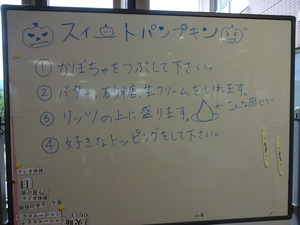 スイートパンプキン
① かぼちゃをつぶして下さい。
② バター、砂糖、生クリームをいれます。
③ リッツの上に盛ります。 ← こんな感じで
④ 好きなトッピングをして下さい。